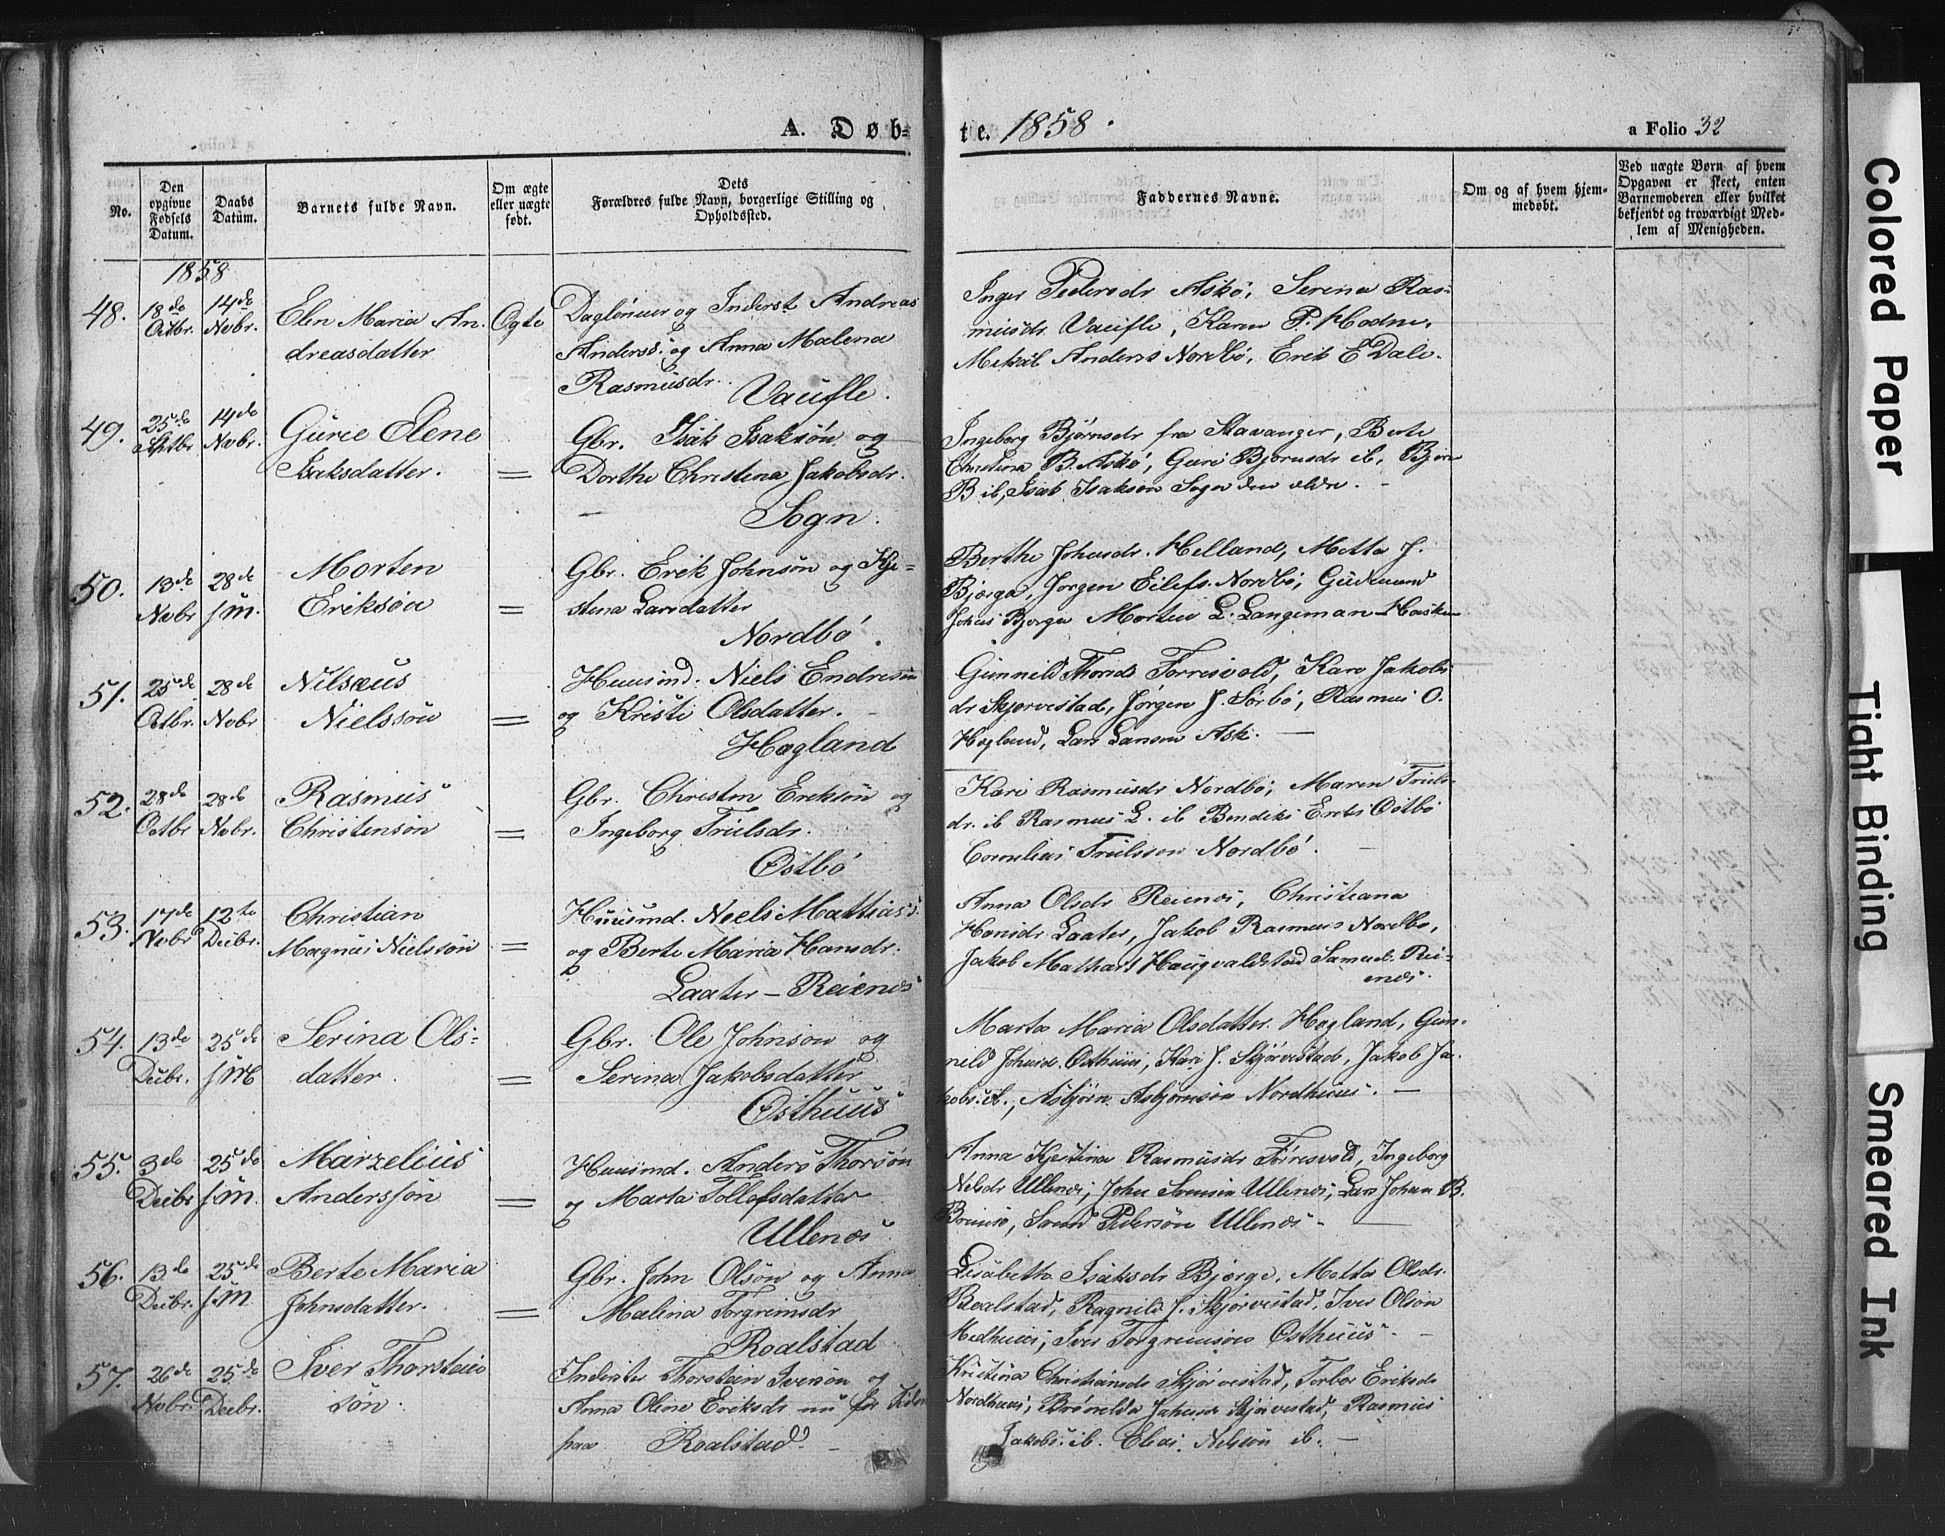 A. Døb-
te. 1858.
a Folio 32
No.
Den opgivne Fødsels Datum.
Daabs Datum.
Barnets fulde Navn.
Om ægte eller uægte født.
Dets
Forældres fulde Navn, borgerlige Stilling og
Opholdssted.
Faddernes Navne.
Om og af hvem hjem-
medøbt.
Ved uægte Børn af hvem
Opgaven er skeet, enten
Barnemoderen eller hvilket
bekjendt og troværdigt Med-
lem af Menigheden.
1858
48. 18de Octbr. 14de Novbr. Elen Maria An-
dreasdatter
Ægte
Daglønner og Inderst Andreas
Anders. og Anna Malena
Rasmusdr.
Inger Pedersdr Askö, Serina Ras-
musdr. , Karen P. Hodne,
Anders Nordbö, Erik E Dale.
49. 25de 14de Novbr. Gurie Elene
Isaksdatter.
=
Gbr. Isak Isaksön og
Dorthe Christina Jakobsdr.
Sogn.
Ingeborg Bjørnsdr fra Stavanger, Berte
Christina B. Askö, Guri Bjørnsdr ib, Bjørn
B ib, Isak Isaksøn Sogn den ældre.
50. 13de Novbr 28de s.M. Morten
Eriksön
=
Gbr. Erik Johnsön og Kje-
stena Larsdatter
Nordbö.
Berthe Johnsdr. Helland, Metta J.
Bjørge, Jørgen Eilefs. Nordbö, Gudmund
Johns Bjørge Morten L. Langeman
51. 25de Octbr. 28de Novbr Nilseus
Nielssön
=
Huusmd. Niels Endresön
og Kristi Olsdatter.
Hogland
Gunnild Thords Torresvold, Kari Jakobs
dr Skjørvestad, Jørgen J. Sörbö, Rasmus O.
Hogland, Lars Larsen Ask.
52. 28de Octbr 28de Novbr. Rasmus
Christensön
=
Gbr. Christen Eriksön og
Ingeborg Truelsdr.
Östbö
Kari Rasmusdr Nordbö, Maren Truels-
dr. ib Rasmus L. ib Bendiks Eriks Östbö
Cornelius Truelssen Nordbö.
53. 17de Novbr 12te Decbr. Christian
Magnus Nielssön
=
Huusmd. Neels Mattias
og Berte Maria Hansdr.
Laater - Reienes
Anna Olsdr Reienes, Christiana
Hansdr Laater, Jakob Rasmus Nordbö,
Jakob Mathias Haugvaldstad Samuel Rei-
enes.
54. 13de Decbr. 25de s.M Serina Ols-
datter.
=
Gbr. Ole Johnson og
Serina Jakobsdatter
Östhuus
Marta Maria Olsdatter Hogland, Gun-
nild Johnsd. Osthuus, Kari J. Skjörvestad, Jakob Ja-
kobs. ib., Asbjörn Asbjørnsön Nordhuus.
55. 3de Decbr 25de s.M. Marzelius
Anderssön
=
Huusmd. Anders Thorsön
og Marta Tollefsdatter
Ullenes
Anna Kjestina Rasmusdr Törresvold, Ingeborg
Nelsdr Ullenes, John Svensen Ullenes, Lars Johan B.
, Svend Pedersön Ullenes.
56. 13de Decbr. 25de s.M. Berte Maria
Johnsdatter.
=
Gbr. John Olsön og Anna
Malena Torgrimsdr
Roalstad
Lisabetta Isaksdr Bjørge, Metta Olsdr.
Roalstad, Ragnild J. Skjørvestad, Iver Olsön
Medhuus, Iver Torgrimsön Osthuus.
57. 26de Novbr. 25de Decbr. Iver Thorstein
sön.
Inderster Thorstein Iversön og
Anna Oline Eriksdr nu for Tiden
paa Roalstad
Kristina Christiansdr Skjørvestad, Torbor Eriksdr
Nordhuus, Brönelda Johnsdr Skjørvestad, Rasmus
Jakobs. ib. Elias Nelsön ib.
Colored Paper
Tight Binding
Smeared Ink